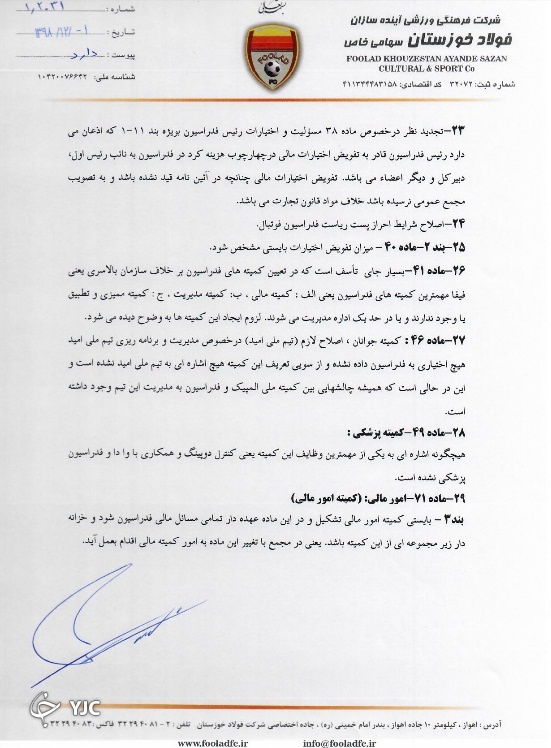 بسمه تعالی
شرکت فرهنگی ورزشی آینده سازان
فولاد خوزستان سهامی خاص
FOOLAD KHOUZESTAN AYANDE SAZAN
CULTURAL & SPORT Co
شماره ثبت: ۳۲۰۷۲ کد اقتصادی: ۴۱۱۳۳۴۴۸۳۱۵۸
FOOLAD
FC
شماره: ۱,۲۰۳۱
تاریخ: ۱۳۹۸/۱۲/۰۱
پیوست: دارد
شناسه ملی: ۱۰۴۲۰۰۷۶۶۴۲
۲۳-تجدید نظر درخصوص ماده ۳۸ مسؤلیت و اختیارات رئیس فدراسیون بریژه بند ۱۱-۱ که اذعان می
دارد رئیس فدراسیون قادر به تفویض اختیارات مالی درچهارچوب هزینه کرد در فدراسیون به نائب رئیس اول،
دبیرکل و دیگر اعضاء می باشد. تفویض اختیارات مالی چنانچه در آئین نامه قید نشده باشد و به تصویب
مجمع عمومی نرسیده باشد خلاف مواد قانون تجارت می باشد.
۲۴-اصلاح شرایط احراز پست ریاست فدراسیون فوتبال.
۲۵-بند ۲-ماده ۴۰ - میزان تفویض اختیارات بایستی مشخص شود.
۲۶-ماده ۴۱-بسیار جای تأسف است که در تعیین کمیته های فدراسیون بر خلاف سازمان بالاسری یعنی
فیفا مهمترین کمیته های فدراسیون یعنی الف : کمیته مالی ، ب: کمیته مدیریت ، ج : کمیته ممیزی و تطبیق
یا وجود ندارند و یا در حد یک اداره مدیریت می شوند. لزوم ایجاد این کمیته ها به وضوح دیده می شود.
۲۷-ماده ۴۶ : کمیته جوانان ، اصلاح لازم (تیم ملی امید) درخصوص مدیریت و برنامه ریزی تیم ملی امید
هیچ اختیاری به فدراسیون داده نشده و از سویی تعریف این کمیته هیچ اشاره ای به تیم ملی امید نشده است و
این در حالی است که همیشه چالشهایی بین کمیته ملی المپیک و فدراسیون به مدیریت این تیم وجود داشته
است.
۲۸-ماده ۴۹-کمیته پزشکی :
هیچگونه اشاره ای به یکی از مهمترین وظایف این کمیته یعنی کنترل دوپینگ و همکاری با وا دا و فدراسیون
پزشکی نشده است.
۲۹-ماده ۷۱-امور مالی: (کمیته امور مالی)
بند۳ - بایستی کمیته امور مالی تشکیل و در این ماده عهده دار تمامی مسائل مالی فدراسیون شود و خزانه
دار زیر مجموعه ای از این کمیته باشد. یعنی در مجمع با تغییر این ماده به امور کمیته مالی اقدام بعمل آید.
YJC
آدرس: اهواز ، کیلومتر ۱۰ جاده اهواز ، بندر امام خمینی (ره) ، جاده اختصاصی شرکت فولاد خوزستان تلفن : ۲ - ۸۱ ۴۰ ۲۹ ۳۲ فاکس: ۸۳ ۴۰ ۲۹ ۳۲
www.fooladfc.ir info@fooladfc.ir